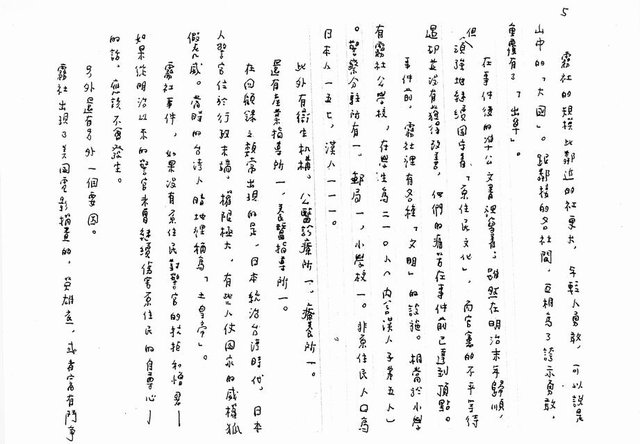 5
霧社的規模比鄰近的社更大,年輕人勇敢,可以說是
山中的「大國」。跟鄰接的各社間,互相為了誇示勇敢,
重覆有了「出草」。
在事件後的準公文書裡寫著,雖然在明治末年歸順,
但頑強地繼續固守著「原住民文化」,而官憲的不平等待
遇卻並沒有獲得改善,他們的痛苦在事件前已達到頂點。
事件前,霧社裡有各種「文明」的設施。相當於小學
有霧社公學校,在學生為二一〇人(內含漢人子弟五人)
。警察分駐所有一,郵局一,小學校一。非原住民人口為
日本人一五七,漢人一一一。
此外有衛生机構。公醫診療所一,療養所一。
還有產業指導所一,養蠶指導所一。
在回顧錄之類常出現的是,日本統治台灣時代,日本
人警官位於行政末端。權限極大,有些人仗國家的威權狐
假虎威。當時的台灣人暗地裡稱為「土皇帝」。
霧社事件,如果沒有原住民對警官的抗拒和憎惡—
如果從明治以來的警官未曾繼續傷害原住民的自尊心—
的話,應該不會發生。
另外還有另外一個要因。
霧社出現了美國電影描畫的,英雄產,或者富有鬥爭